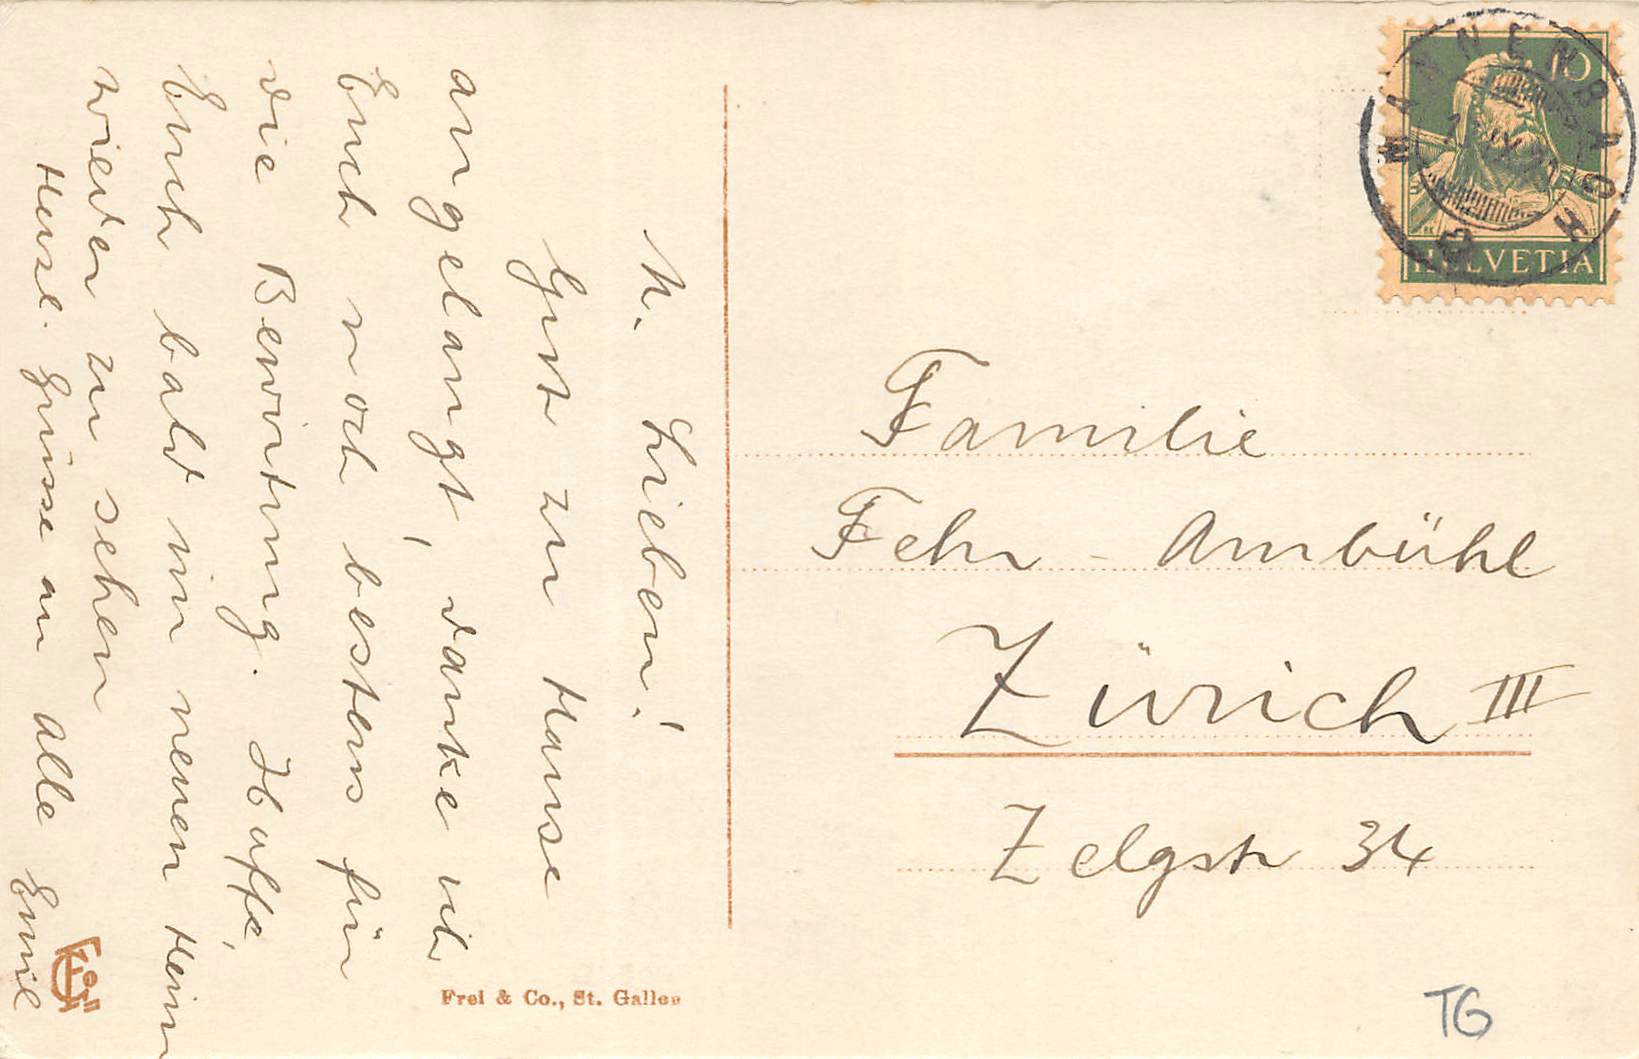 N. Lieben!
Gut zu Hause
angelangt, danke ich
Euch noch bestens für
die Bewirtung. Hoffe,
Euch bald im neuen Heim
wieder zu sehen
Herzl. Grüsse an alle Emil
Frei & Co., St. Gallen
MANNENBACH
10
HELVETIA
Familie
Fehr - Ambühl
Zürich III
Zelgstr 34
TG